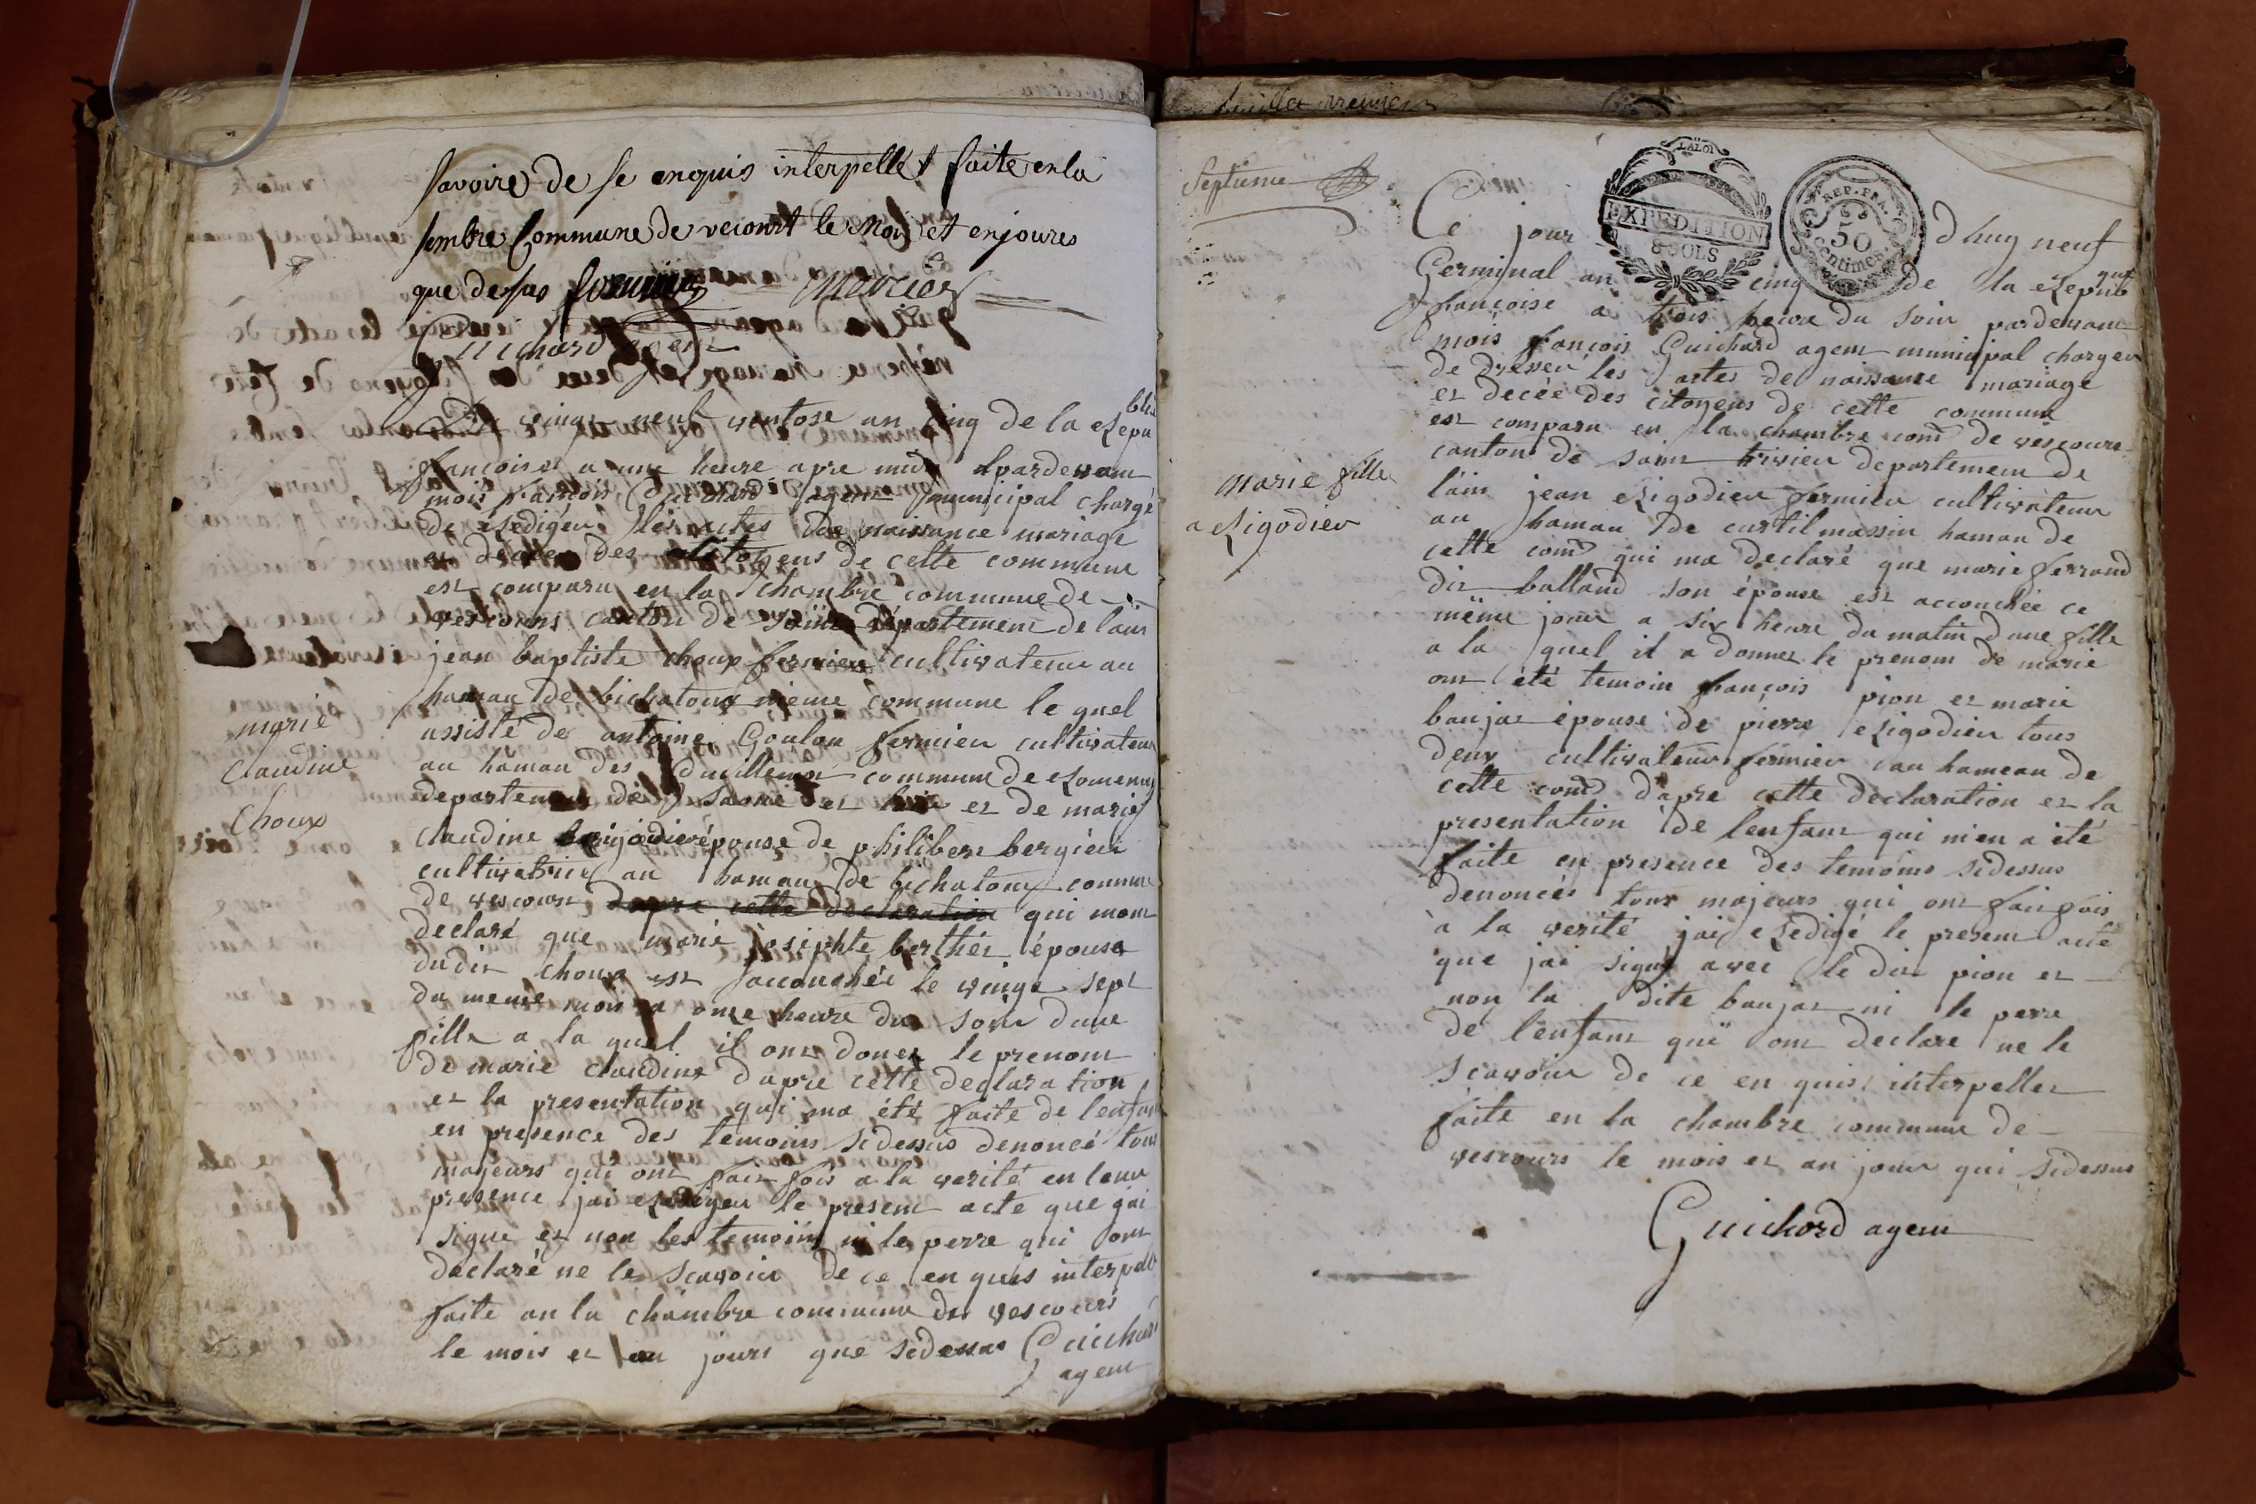 savoire de se enquis interpellé & faite en la
sembre Commune de vecourt le mois et en joures
que dessus
Guichard agent
Du vingt neuf ventose an cinq de la Repu
blie
francoise a une heure apre midi pardevant
mois francois Guichard agent municipal chargé
de Redigér les actes de naissance mariage
et decée des citoyens de cette commune
est comparu en la chambre commune de
vescours canton de département de lain
jean baptiste choux fermier cultivateur au
hamau de bichatoux mème commune le quel
assisté de antoine Goulon fermier cultivateur
au hamau des commune de Romenay
departement de Saone et loire et de marie
claudine Rigodier épouse de philibert bergier
cultivatrice au hamau de bichatoux commune
de vescours dapre cette declaration qui mont
declaré que marie josephte berthét épouse
dudit choux est accouchée le vingt sept
du meme mois a onze heure du soir dune
fille a la quel il ont donér le prenom
de marie claudine dapre cette declaration
et la presentation qui ma été faite de lenfant
en presence des temoins sidessus denoncé tous
majeurs qui ont fait fois a la verité en leur
presence jai Redigeu le present acte que jai
signe et non les temoins ni le perre qui ont
declaré ne le scavoir de ce en quis interpellé
faite an la chambre commune de vescours
le mois et an jours que sidessus Guichard
agent
marie
claudine
Choux
feuillet
Septieme
LA LOI
EXPEDITION
8 SOLS
REP. FRA.
50
Centimes
Ce jour dhuy neuf
Germinal an cinq de la Repub
que
francoise a trois heure du soir pardevant
mois francois Guichard agent municipal chargeu
de dresser les actes de naissance mariage
et decée des citoyens de cette commune
est comparu en la chambre com de vescours
canton de saint trivier departement de
lain jean Rigodier fermier cultivateur
au hamau de curtil massin hamau de
cette com qui ma declaré que marie ferrand
dit balland son épouse est accouchée ce
mème jour a six heure du matin dune fille
a la quel il a donner le prenom de marie
ont été temoin francois pion et marie
banjat épouse de pierre Rigodier tous
deux cultivateur fermier au hameau de
cette com dapre cette declaration et la
presentation de lenfant qui m'en a été
faite en presence des temoins sidessus
denoncés tous majeurs qui ont fait fois
à la verité jai Redigé le present acte
que jai signé avec le dit pion et
non la dite banjat ni le perre
de l'enfant qui ont declare ne le
scavoir de ce en quis interpeller
faite en la chambre commune de
vescours le mois et an jour qui sidessus
Guichard agent
marie fille
a Rigodier